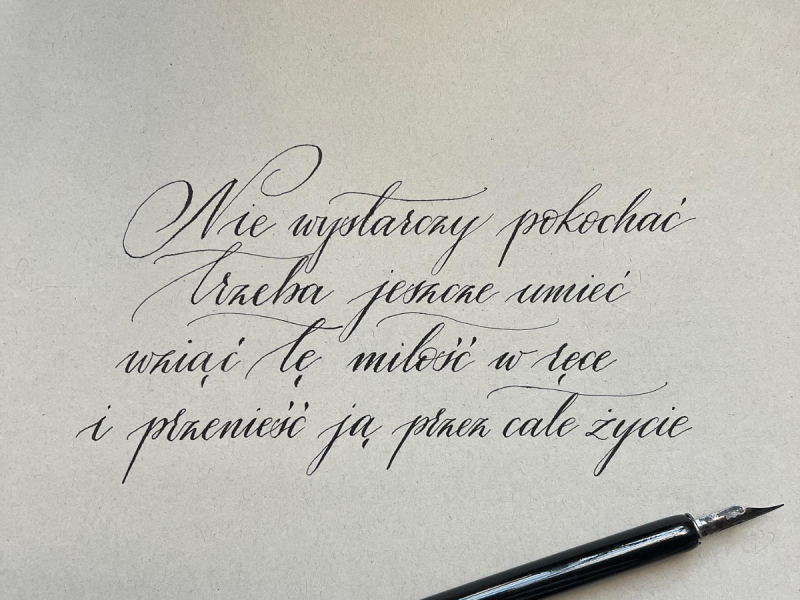 Nie wystarczy pokochać
trzeba jeszcze umieć
wziąć tę miłość w ręce
i przenieść ją przez całe życie